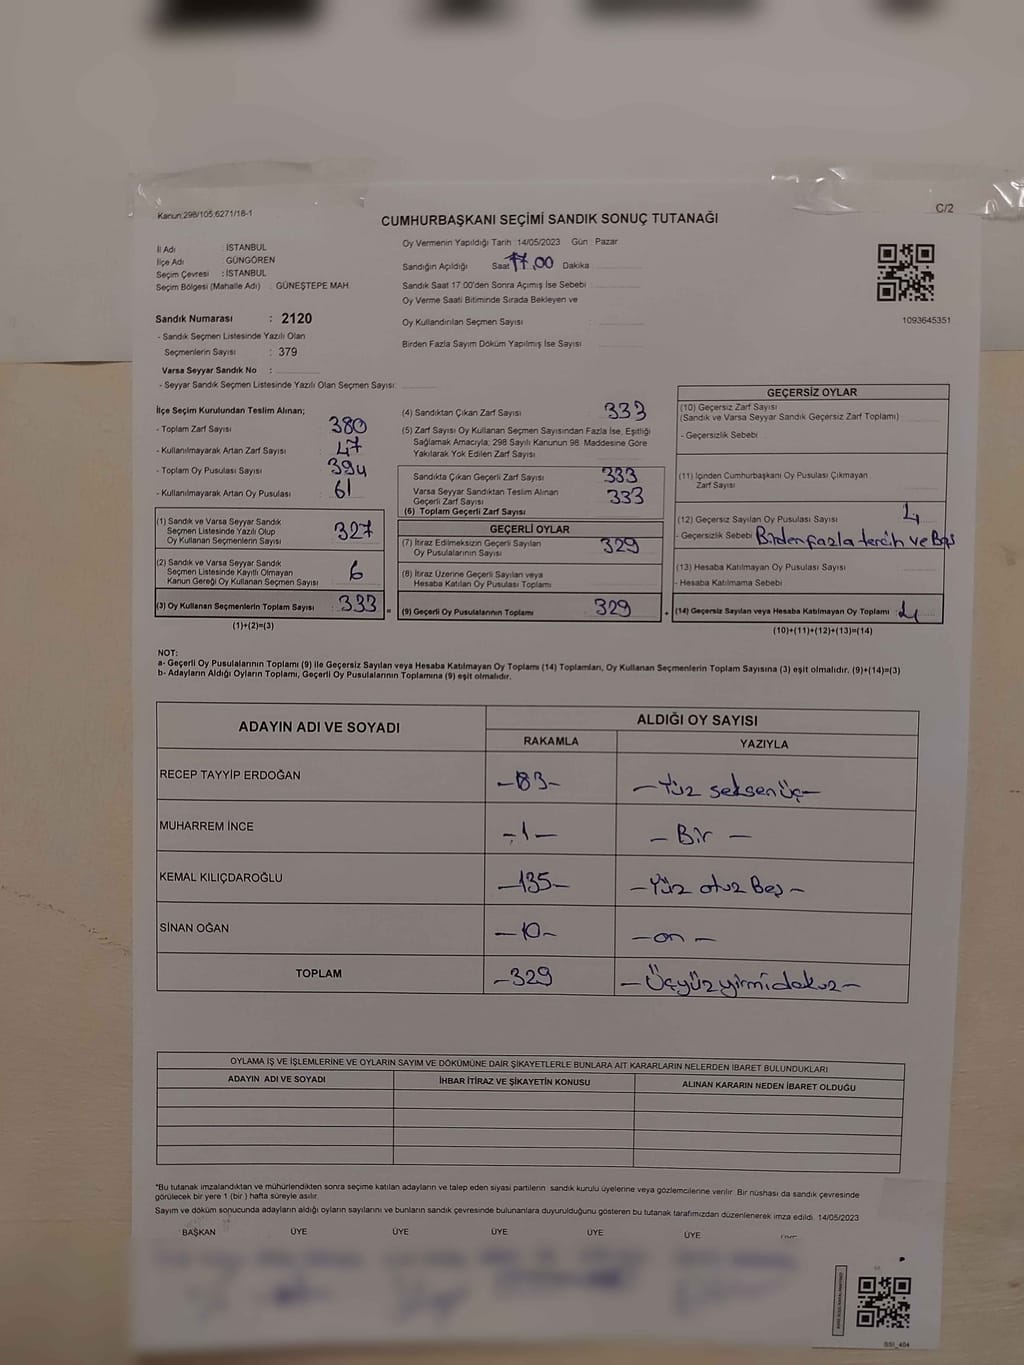 Kanun:298/105,6271/18-1
C/2
CUMHURBAŞKANI SEÇİMİ SANDIK SONUÇ TUTANAĞI
İl Adı : İSTANBUL
İlçe Adı : GÜNGÖREN
Seçim Çevresi : İSTANBUL
Seçim Bölgesi (Mahalle Adı) : GÜNEŞTEPE MAH.
Oy Vermenin Yapıldığı Tarih 14/05/2023 Gün Pazar
Sandığın Açıldığı Saat 17.00 Dakika
Sandık Saat 17.00'den Sonra Açımış İse Sebebi
Oy Verme Saati Bitiminde Sırada Bekleyen ve
Oy Kullandırılan Seçmen Sayısı :
Birden Fazla Sayım Döküm Yapılmış İse Sayısı
1093645351
Sandık Numarası : 2120
- Sandık Seçmen Listesinde Yazılı Olan
Seçmenlerin Sayısı : 379
Varsa Seyyar Sandık No :
- Seyyar Sandık Seçmen Listesinde Yazılı Olan Seçmen Sayısı:
İlçe Seçim Kurulundan Teslim Alınan;
- Toplam Zarf Sayısı : 380
- Kullanılmayarak Artan Zarf Sayısı : 47
- Toplam Oy Pusulası Sayısı : 394
- Kullanılmayarak Artan Oy Pusulası : 61
(1) Sandık ve Varsa Seyyar Sandık
Seçmen Listesinde Yazılı Olup
Oy Kullanan Seçmenlerin Sayısı : 327
(2) Sandık ve Varsa Seyyar Sandık
Seçmen Listesinde Kayıtlı Olmayan
Kanun Gereği Oy Kullanan Seçmen Sayısı : 6
(3) Oy Kullanan Seçmenlerin Toplam Sayısı : 333
(1)+(2)=(3)
(4) Sandıktan Çıkan Zarf Sayısı 333
(5) Zarf Sayısı Oy Kullanan Seçmen Sayısından Fazla İse, Eşitliği
Sağlamak Amacıyla; 298 Sayılı Kanunun 98. Maddesine Göre
Yakılarak Yok Edilen Zarf Sayısı
Sandıkta Çıkan Geçerli Zarf Sayısı 333
Varsa Seyyar Sandıktan Teslim Alınan
Geçerli Zarf Sayısı 333
(6) Toplam Geçerli Zarf Sayısı
GEÇERLİ OYLAR
(7) İtiraz Edilmeksizin Geçerli Sayılan
Oy Pusulalarının Sayısı 329
(8) İtiraz Üzerine Geçerli Sayılan veya
Hesaba Katılan Oy Pusulası Toplamı
= (9) Geçerli Oy Pusulalarının Toplamı 329 +
GEÇERSİZ OYLAR
(10) Geçersiz Zarf Sayısı
(Sandık ve Varsa Seyyar Sandık Geçersiz Zarf Toplamı)
- Geçersizlik Sebebi
(11) İçinden Cumhurbaşkanı Oy Pusulası Çıkmayan
Zarf Sayısı
(12) Geçersiz Sayılan Oy Pusulası Sayısı 4
- Geçersizlik Sebebi Birden fazla tercih ve Boş
(13) Hesaba Katılmayan Oy Pusulası Sayısı
- Hesaba Katılmama Sebebi
(14) Geçersiz Sayılan veya Hesaba Katılmayan Oy Toplamı 4
(10)+(11)+(12)+(13)=(14)
NOT:
a- Geçerli Oy Pusulalarının Toplamı (9) ile Geçersiz Sayılan veya Hesaba Katılmayan Oy Toplamı (14) Toplamları, Oy Kullanan Seçmenlerin Toplam Sayısına (3) eşit olmalıdır. (9)+(14)=(3)
b- Adayların Aldığı Oyların Toplamı, Geçerli Oy Pusulalarının Toplamına (9) eşit olmalıdır.
ADAYIN ADI VE SOYADI
ALDIĞI OY SAYISI
RAKAMLA YAZIYLA
RECEP TAYYİP ERDOĞAN -183- -Yüz seksen üç-
MUHARREM İNCE -1- -Bir -
KEMAL KILIÇDAROĞLU -135- -Yüz otuz Beş-
SİNAN OĞAN -10- -on -
TOPLAM -329 -Üçyüzyirmidokuz-
OYLAMA İŞ VE İŞLEMLERİNE VE OYLARIN SAYIM VE DÖKÜMÜNE DAİR ŞİKAYETLERLE BUNLARA AİT KARARLARIN NELERDEN İBARET BULUNDUKLARI
ADAYIN ADI VE SOYADI İHBAR İTİRAZ VE ŞİKAYETİN KONUSU ALINAN KARARIN NEDEN İBARET OLDUĞU
*Bu tutanak imzalandıktan ve mühürlendikten sonra seçime katılan adayların ve talep eden siyasi partilerin sandık kurulu üyelerine veya gözlemcilerine verilir. Bir nüshası da sandık çevresinde
görülecek bir yere 1 (bir ) hafta süreyle asılır.
Sayım ve döküm sonucunda adayların aldığı oyların sayılarını ve bunların sandık çevresinde bulunanlara duyurulduğunu gösteren bu tutanak tarafımızdan düzenlenerek imza edildi. 14/05/2023
BAŞKAN ÜYE ÜYE ÜYE ÜYE ÜYE ÜYE
SSI_404